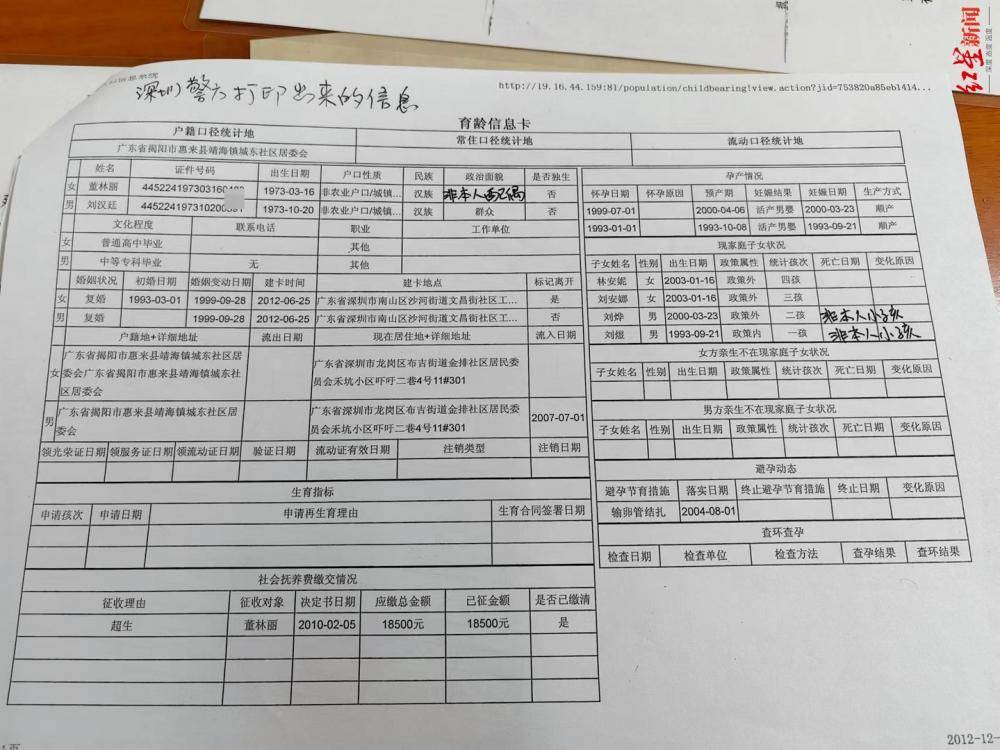 红星新闻
深度 态度 速度
深圳警方打印出来的信息
http://19.16.44.159:81/population/childbearing!view.action?jid=753820a85eb1414...
育龄信息卡
户籍口径统计地 常住口径统计地 流动口径统计地
广东省揭阳市惠来县靖海镇城东社区居委会
姓名 证件号码 出生日期 户口性质 民族 政治面貌 是否独生
女 董林丽 445224197303160 1973-03-16 非农业户口/城镇... 汉族 非本人配偶 否
男 刘汉廷 445224197310200 1973-10-20 非农业户口/城镇... 汉族 群众 否
文化程度 联系电话 职业 工作单位
女 普通高中毕业 其他
男 中等专科毕业 无 其他
婚姻状况 初婚日期 婚姻变动日期 建卡时间 建卡地点 标记离开
女 复婚 1993-03-01 1999-09-28 2012-06-25 广东省深圳市南山区沙河街道文昌街社区工... 是
男 复婚 1999-09-28 2012-06-25 广东省深圳市南山区沙河街道文昌街社区工... 否
户籍地+详细地址 流出日期 现在居住地+详细地址 流入日期
女 广东省揭阳市惠来县靖海镇城东社区居
委会广东省揭阳市惠来县靖海镇城东社
区居委会
广东省深圳市龙岗区布吉街道金排社区居民委
员会禾坑小区吓吓二巷4号11#301
男 广东省揭阳市惠来县靖海镇城东社区居
委会
广东省深圳市龙岗区布吉街道金排社区居民委
员会禾坑小区吓吓二巷4号11#301
2007-07-01
领光荣证日期 领服务证日期 领流动证日期 验证日期 流动证有效日期 注销类型 注销日期
生育指标
申请孩次 申请日期 申请再生育理由 生育合同签署日期
社会抚养费缴交情况
征收理由 征收对象 决定书日期 应缴总金额 已征金额 是否已缴清
超生 董林丽 2010-02-05 18500元 18500元 是
孕产情况
怀孕日期 怀孕原因 预产期 妊娠结果 妊娠日期 生产方式
1999-07-01 2000-04-06 活产男婴 2000-03-23 顺产
1993-01-01 1993-10-08 活产男婴 1993-09-21 顺产
现家庭子女状况
子女姓名 性别 出生日期 政策属性 统计孩次 死亡日期 变化原因
林安妮 女 2003-01-16 政策外 四孩
刘安娜 女 2003-01-16 政策外 三孩
刘烨 男 2000-03-23 政策外 二孩 非本人小孩
刘煜 男 1993-09-21 政策内 一孩 非本人小孩
女方亲生不在现家庭子女状况
子女姓名 性别 出生日期 政策属性 统计孩次 死亡日期 变化原因
男方亲生不在现家庭子女状况
子女姓名 性别 出生日期 政策属性 统计孩次 死亡日期 变化原因
避孕动态
避孕节育措施 落实日期 终止避孕节育措施 终止日期 变化原因
输卵管结扎 2004-08-01
查环查孕
检查日期 检查单位 检查方法 查孕结果 查环结果
2012-12-